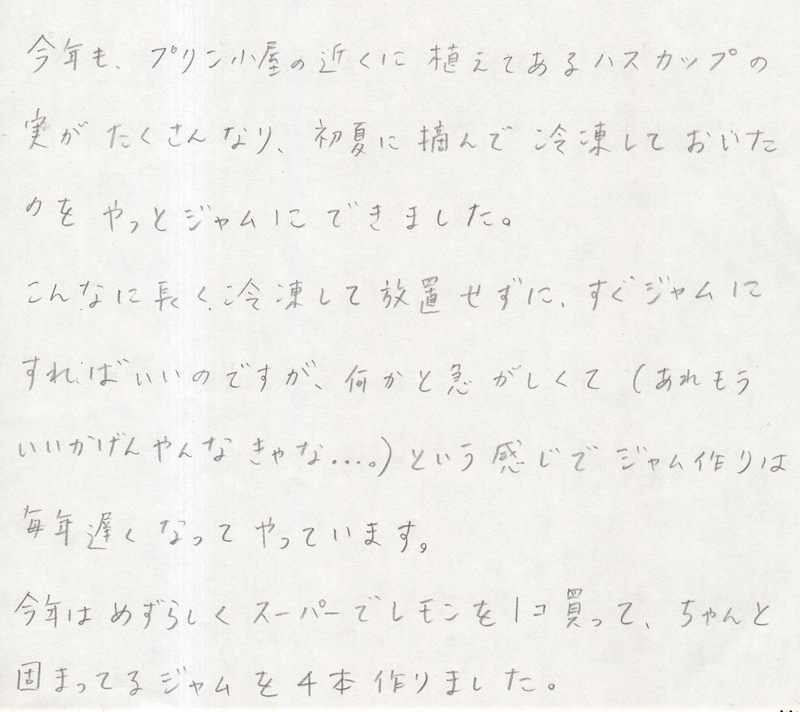 今年も、プリン小屋の近くに植えてあるハスカップの
実がたくさんなり、初夏に摘んで冷凍しておいた
のをやっとジャムにできました。
こんなに長く冷凍して放置せずに、すぐジャムに
すればいいのですが、何かと急がしくて(あれもう
いいかげんやんなきゃな…。)という感じでジャム作りは
毎年遅くなってやっています。
今年はめずらしくスーパーでレモンを1コ買って、ちゃんと
固まってるジャムを4本作りました。